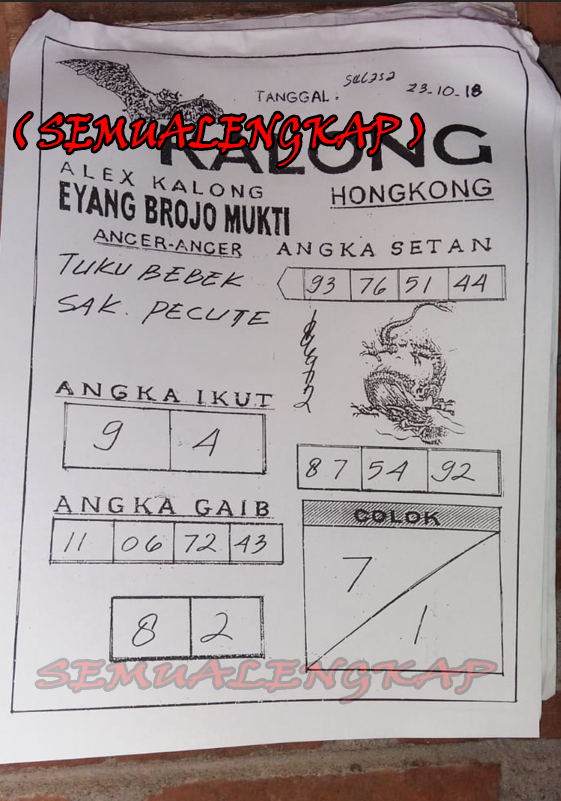 TANGGAL : Selasa 23-10-18
(SEMUALENGKAP)
KALONG
ALEX KALONG
HONGKONG
EYANG BROJO MUKTI
ANCER-ANCER
TUKU BEBEK
SAK. PECUTE
ANGKA SETAN
93 76 51 44
ANGKA IKUT
9 4
87 54 92
ANGKA GAIB
11 06 72 43
8 2
COLOK
7
1
SEMUALENGKAP